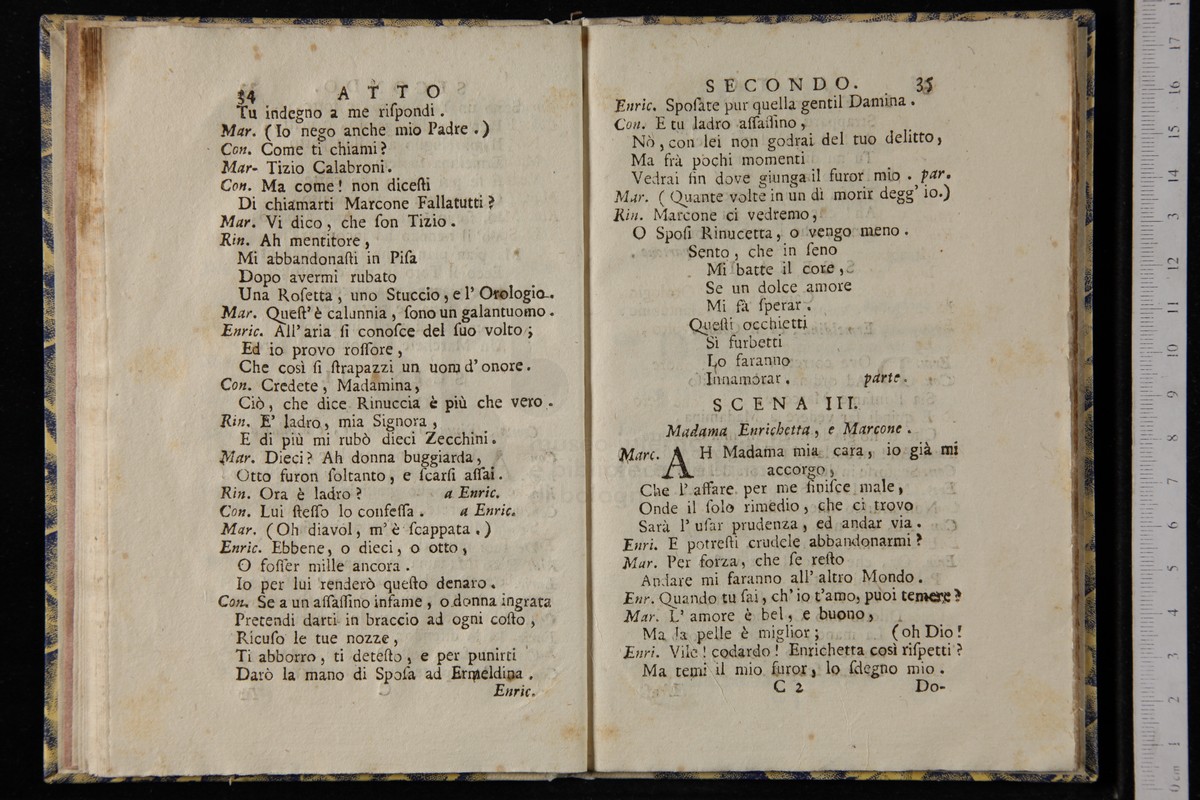 34 ATTO
Tu indegno a me riſpondi.
Mar. (Io nego anche mio Padre.)
Con. Come ti chiami?
Mar- Tizio Calabroni.
Con. Ma come! non diceſti
Di chiamarti Marcone Fallatutti?
Mar. Vi dico, che ſon Tizio.
Rin. Ah mentitore,
Mi abbandonaſti in Piſa
Dopo avermi rubato
Una Roſetta, uno Stuccio, e l' Orologio.
Mar. Queſt' è calunnia, ſono un galantuomo.
Enric. All' aria ſi conoſce del ſuo volto;
Ed io provo roſſore,
Che così ſi ſtrapazzi un uom d' onore.
Con. Credete, Madamina,
Ciò, che dice Rinuccia è più che vero.
Rin. E' ladro, mia Signora,
E di più mi rubò dieci Zecchini.
Mar. Dieci? Ah donna buggiarda,
Otto furon ſoltanto, e ſcarſi aſſai.
Rin. Ora è ladro? a Enric.
Con. Lui ſteſſo lo confeſſa. a Enric.
Mar. (Oh diavol, m' è ſcappata.)
Enric. Ebbene, o dieci, o otto,
O foſſer mille ancora.
Io per lui renderò queſto denaro.
Con. Se a un aſſaſſino infame, o donna ingrata
Pretendi darti in braccio ad ogni coſto,
Ricuſo le tue nozze,
Ti abborro, ti deteſto, e per punirti
Darò la mano di Spoſa ad Ermeldina.
Enric.
SECONDO. 35
Enric. Spoſate pur quella gentil Damina.
Con. E tu ladro aſſaſſino,
Nò, con lei non godrai del tuo delitto,
Ma frà pochi momenti
Vedrai ſin dove giunga il furor mio. par.
Mar. (Quante volte in un dì morir degg' io.)
Rin. Marcone ci vedremo,
O Spoſi Rinucetta, o vengo meno.
Sento, che in ſeno
Mi batte il core,
Se un dolce amore
Mi fà ſperar.
Queſti occhietti
Si furbetti
Lo faranno
Innamorar. parte.
SCENA III.
Madama Enrichetta, e Marcone.
Marc. AH Madama mia cara, io già mi
accorgo,
Che l' affare per me finiſce male,
Onde il ſolo rimedio, che ci trovo
Sarà l' uſar prudenza, ed andar via.
Enri. E potreſti crudele abbandonarmi?
Mar. Per forza, che ſe reſto
Andare mi faranno all' altro Mondo.
Enr. Quando tu ſai, ch' io t'amo, puoi temere?
Mar. L' amore è bel, e buono,
Ma la pelle è miglior; (oh Dio!
Enri. Vile! codardo! Enrichetta così riſpetti?
Ma temi il mio furor, lo ſdegno mio.
C 2 Do-